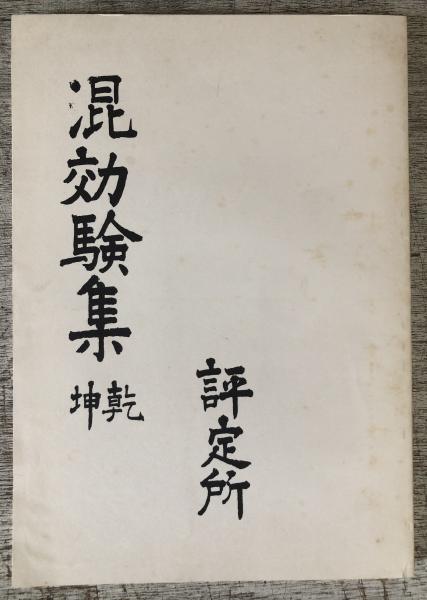 混効験集
乾
坤
評定所